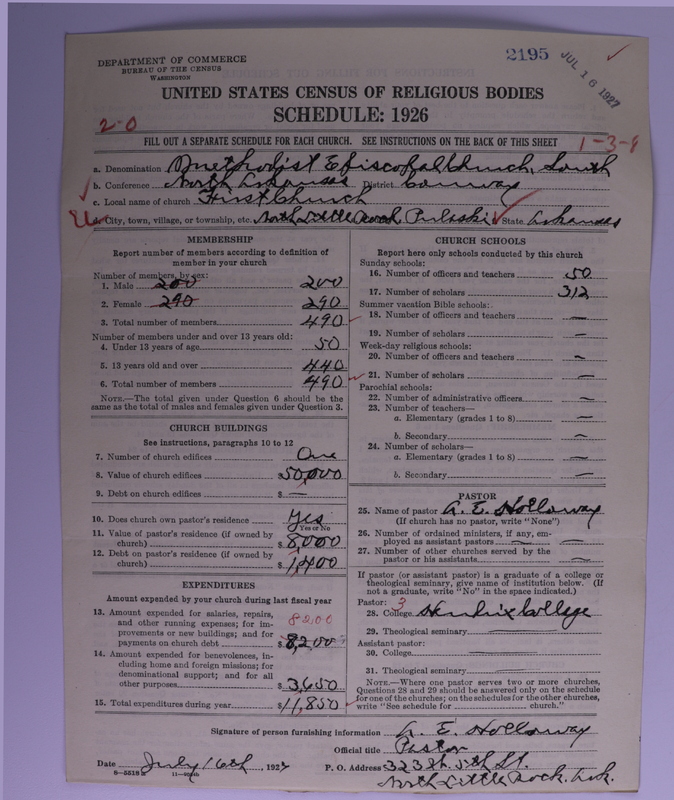 DEPARTMENT OF COMMERCE
BUREAU OF THE CENSUS
WASHINGTON
2195
JUL 16 1927
UNITED STATES CENSUS OF RELIGIOUS BODIES
SCHEDULE: 1926
2-0
FILL OUT A SEPARATE SCHEDULE FOR EACH CHURCH. SEE INSTRUCTIONS ON THE BACK OF THIS SHEET
1-3-8
a. Denomination Methodist Episcopal Church, South
b. Conference North Arkansas District Conway
c. Local name of church First Church
d. City, town, village, or township, etc. North Little Rock Pulaski State Arkansas
MEMBERSHIP
Report number of members according to definition of
member in your church
Number of members, by sex:
1. Male 200 200
2. Female 290 290
3. Total number of members 490
Number of members under and over 13 years old:
4. Under 13 years of age 50
5. 13 years old and over 440
6. Total number of members 490
NOTE.—The total given under Question 6 should be the
same as the total of males and females given under Question 3.
CHURCH BUILDINGS
See instructions, paragraphs 10 to 12
7. Number of church edifices One
8. Value of church edifices $50,000
9. Debt on church edifices $ —
10. Does church own pastor's residence Yes
Yes or No
11. Value of pastor's residence (if owned by
church) $8,000
12. Debt on pastor's residence (if owned by
church) $1,400
EXPENDITURES
Amount expended by your church during last fiscal year
13. Amount expended for salaries, repairs,
and other running expenses; for im-
provements or new buildings; and for
payments on church debt $8,200
8200
14. Amount expended for benevolences, in-
cluding home and foreign missions; for
denominational support; and for all
other purposes $3,650
15. Total expenditures during year $11,850
CHURCH SCHOOLS
Report here only schools conducted by this church
Sunday schools:
16. Number of officers and teachers 50
17. Number of scholars 312
Summer vacation Bible schools:
18. Number of officers and teachers —
19. Number of scholars —
Week-day religious schools:
20. Number of officers and teachers —
21. Number of scholars —
Parochial schools:
22. Number of administrative officers —
23. Number of teachers—
a. Elementary (grades 1 to 8) —
b. Secondary —
24. Number of scholars—
a. Elementary (grades 1 to 8) —
b. Secondary —
PASTOR
25. Name of pastor A. E. Holloway
(If church has no pastor, write "None")
26. Number of ordained ministers, if any, em-
ployed as assistant pastors —
27. Number of other churches served by the
pastor or his assistants —
If pastor (or assistant pastor) is a graduate of a college or
theological seminary, give name of institution below. (If
not a graduate, write "No" in the space indicated.)
Pastor: 3
28. College Hendrix College
29. Theological seminary —
Assistant pastor:
30. College —
31. Theological seminary —
NOTE.—Where one pastor serves two or more churches,
Questions 28 and 29 should be answered only on the schedule
for one of the churches; on the schedules for the other churches,
write "See schedule for church."
Signature of person furnishing information A. E. Holloway
Official title Pastor
Date July 16th, 1927 P. O. Address 323 W. 5th St.
North Little Rock, Ark.